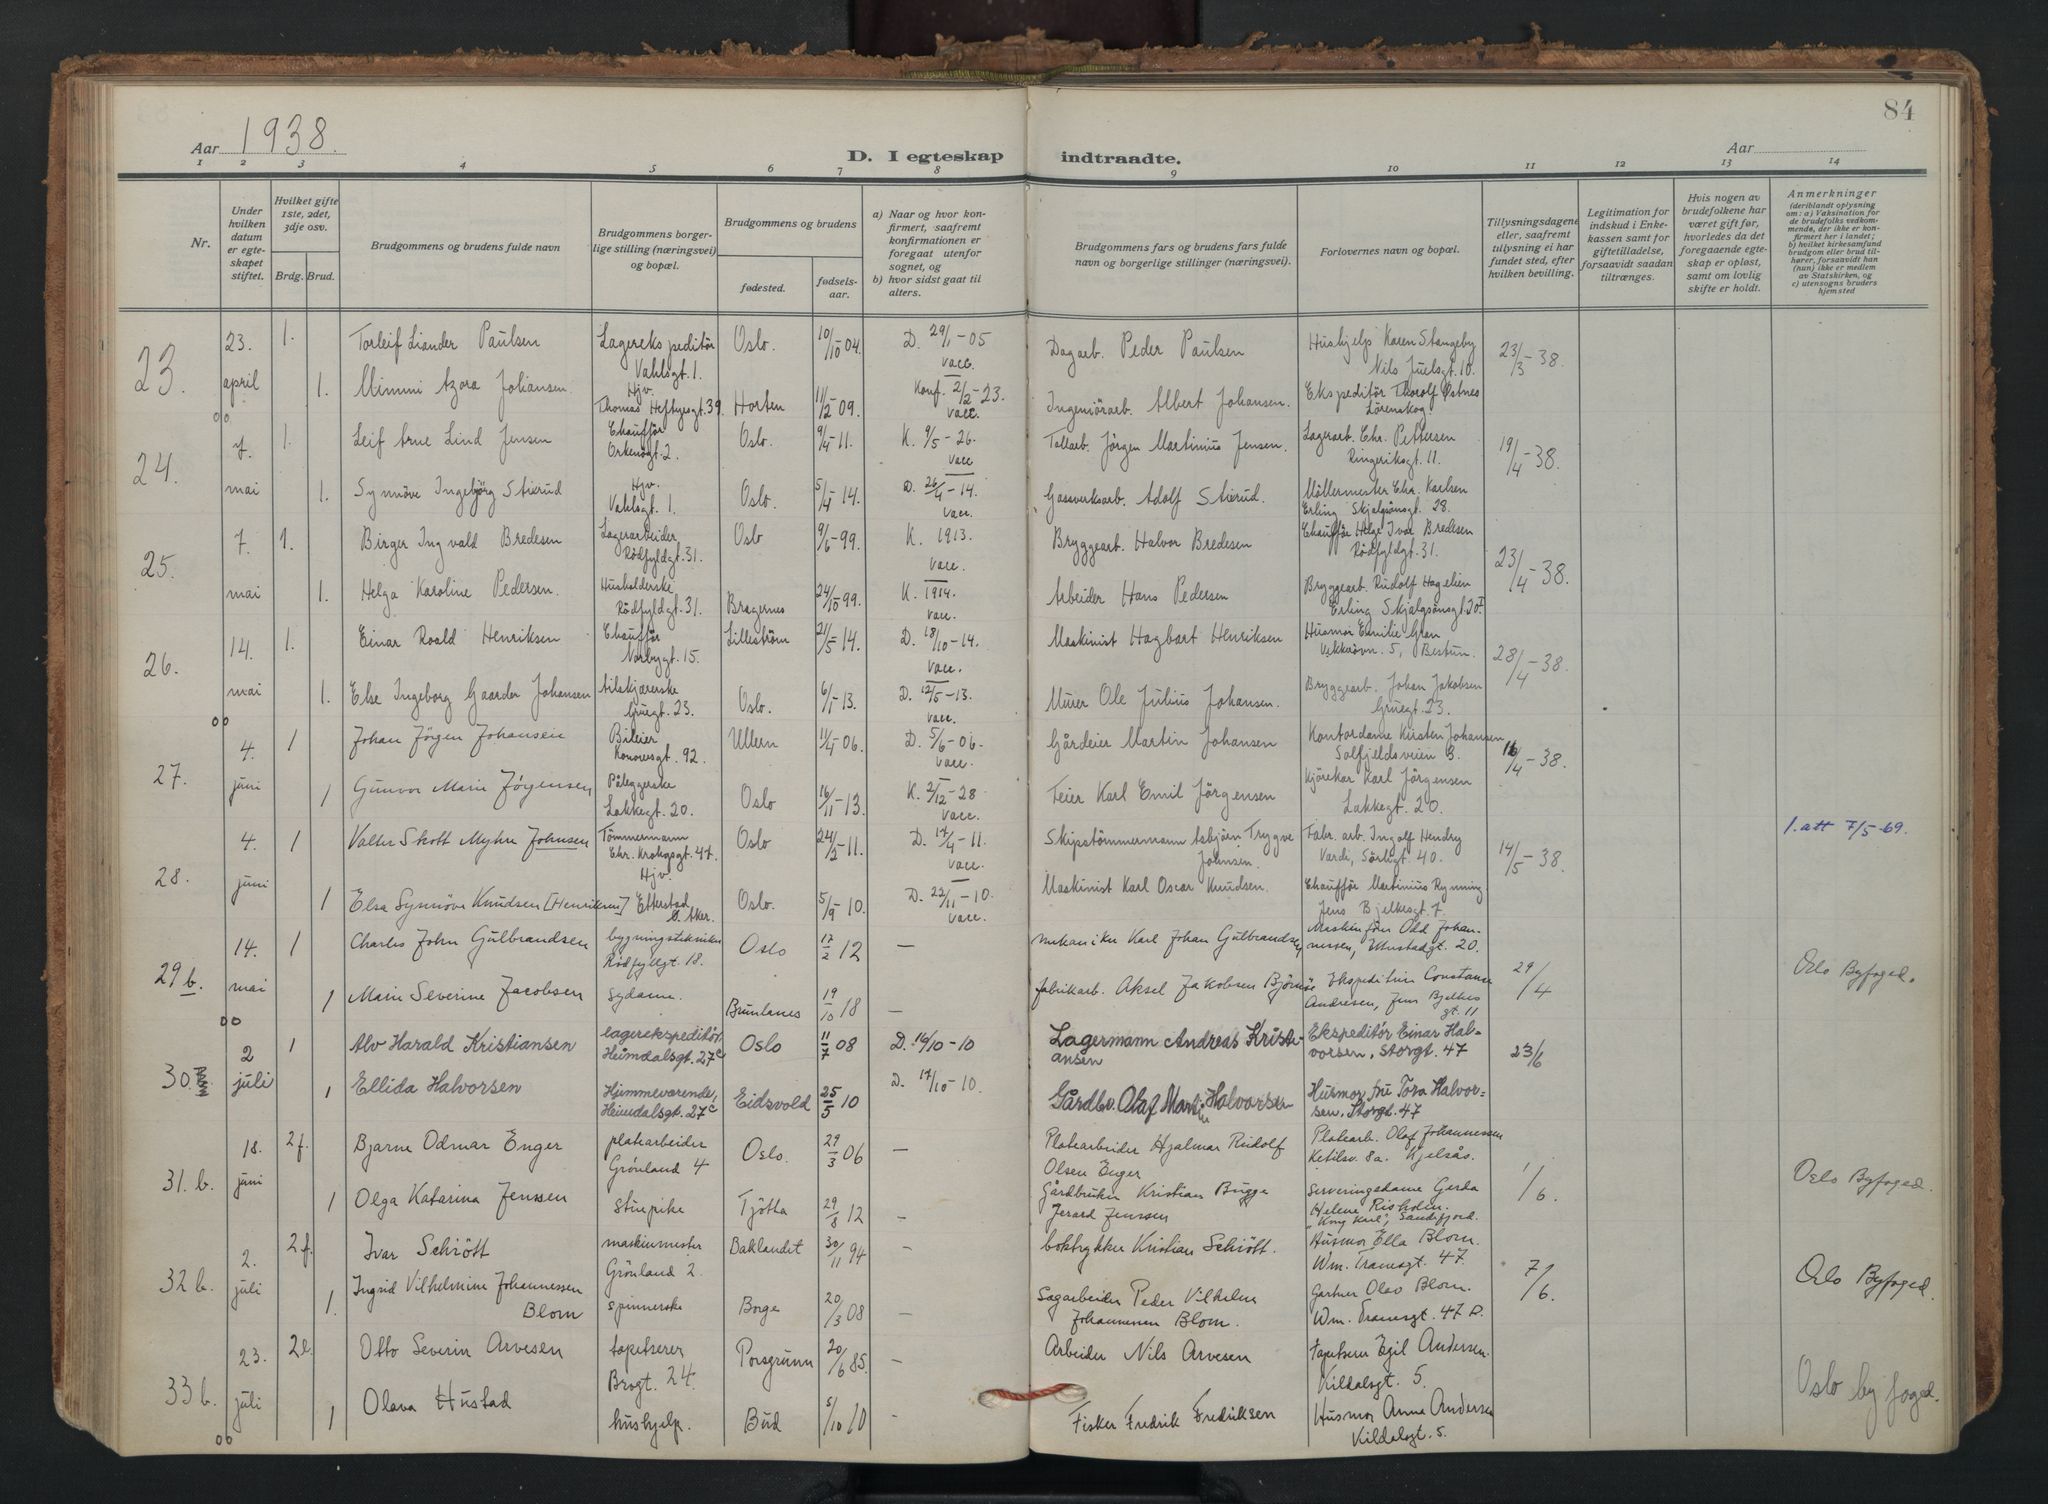 84
Aar 1938.
D. I egteskap indtraadte.
Aar
1 2 3 4 5 6 7 8 9 10 11 12 13 14
Nr.
Under hvilken datum er egteskapet stiftet.
Hvilket gifte 1ste, 2det, 3dje osv.
Brdg. Brud.
Brudgommens og brudens fulde navn
Brudgommens borgerlige stilling (næringsvei) og bopæl.
Brudgommens og brudens
fødested.
fødselsaar.
a) Naar og hvor konfirmert, saafremt konfirmationen er foregaat utenfor sognet, og
b) hvor sidst gaat til alters.
Brudgommens fars og brudens fars fulde navn og borgerlige stillinger (næringsvei).
Forlovernes navn og bopæl.
Tillysningsdagene eller, saafremt tillysning ei har fundet sted, efter hvilken bevilling.
Legitimation for indskud i Enkekassen samt for giftetilladelse, forsaavidt saadan tiltrænges.
Hvis nogen av brudefolkene har været gift før, hvorledes da det foregaaende egteskap er opløst, samt om lovlig skifte er holdt.
Anmerkninger
(deriblandt oplysning om: a) Vaksination for de brudefolks vedkommende, der ikke er konfirmert her i landet; b) hvilket kirkesamfund brudgom eller brud tilhører, forsaavidt han (hun) ikke er medlem av Statskirken, og c) utensogns bruders hjemsted
23. 23. april 1. Torleif Liander Paulsen Lagerekspeditör Vahlsgt. 1. Oslo. 10/10 04. D. 29/1-05 vacc. Dagarb. Peder Paulsen Hushjelp Karen Stangeby Nils Juelsgt. 10. 23/3-38.
1. Mimmi Azora Johansen. Hjv. Thomas Heftyesgt. 39. Horten 11/2-09. Konf. 2/2-23. vacc. Ingeniörarb. Albert Johansen. Ekspeditör Thorolf Østnes Lörenskog.
24. 7. mai 1. Leif Arne Lind Jensen Chaufför Orknögt. 2. Oslo. 9/4-11. K. 9/5-26. vacc Tollarb. Jörgen Martinius Jensen. Lagerarb. Chr. Pettersen Ringeriksgt. 11. 19/4-38.
1. Synnöve Ingebjörg Stierud Hjv. Vahlsgt. 1 Oslo. 5/4-14. D. 26/4-14. vacc. Gassverksarb. Adolf Stierud. Möllermester Chr. Karlsen Erling Skjalgsönsgt. 28.
25. 7. mai 1. Birger Ingvald Bredesen Lagerarbeider Rödfyldgt. 31. Oslo 9/6-99. K. 1913. vacc. Bryggearb. Halvor Bredesen Chaufför Helge Ivar Bredesen Rödfyldgt. 31. 23/4-38.
1. Helga Karoline Pedersen. Husholderske Rödfyldgt. 31. Bragernes 24/10 99. K. 1914. vacc. Arbeider Hans Pedersen Bryggearb. Rudolf Hagelien Erling Skjalgsönsgt. 20 I
26. 14. mai 1. Einar Roald Henriksen Chaufför Norbygt. 15. Lilleström 21/5-14. D. 18/10-14. vacc. Maskinist Hagbart Henriksen Husmor Emilie Gran Vekkerövn. 5, Bestun. 28/4-38.
1. Else Ingeborg Gaarder Johansen Tilskjærerske Gruegt. 23. Oslo. 6/1-13. D. 12/5-13. vacc. Murer Ole Julius Johansen. Bryggearb. Johan Jakobsen Gruegt. 23.
27. 4. juni 1 Johan Jörgen Johansen Bileier Konowsgt. 92. Ullern 11/4-06. D. 5/6-06. vacc. Gårdeier Martin Johansen Kontordame Kirsten Johansen Solfjeldsveien 3. 16/4-38.
1 Gunvor Marie Jörgensen Påleggerske Lakkegt. 20. Oslo 16/11-13 K. 2/12-28 vacc. Feier Karl Emil Jörgensen Kjörekar Karl Jörgensen Lakkegt. 20.
28. 4. juni 1 Valter Skott Myhre Johnsen Tömmermann Chr. Krohgsgt. 47. Oslo 24/2-11. D. 17/4-11. vacc. Skipstömmermann Asbjörn Trygve Johnsen. Fabr. arb. Ingolf Hendry Varde, Sörligt. 40. 14/5-38. 1. att 7/5-69.
1 Elsa Synnöve Knudsen [Henriksen] Hjv. Etterstad Ö. Aker. Oslo. 5/9-10. D. 22/11-10. vacc. Maskinist Karl Oscar Knudsen. Chaufför Martinius Rynning Jens Bjelkesgt. 7.
29 b. 14. mai 1 Charles John Gulbrandsen bygningstekniker Rödfyllgt. 18. Oslo 17/2 12 — mekaniker Karl Johan Gulbrandsen Maskinförer Olof Johannessen, Urustadgt. 20. 29/4 Oslo Byfoged.
1 Marie Severine Jacobsen sydame. Brunlanes 19/10 18 — fabrikarb. Aksel Jakobsen Björnöe Ekspeditrise Constance Andresen, Jens Bjelkes gt. 11
30. 2 juli 1 Alv Harald Kristiansen lagerekspeditör, Heimdalsgt. 27c Oslo 11/7 08 D. 16/10-10 Lagermann Andreas Kristiansen Ekspeditör Einar Halvorsen, Storgt. 47 23/6
1 Ellida Halvorsen Hjemmeværende, Heimdalsgt. 27c Eidsvold 25/5 10 D. 17/10-10. Gårdbr. Olaf Martin Halvorsen Husmor, fru Tora Halvorsen, Storgt. 47
31. b. 18. juni 2 f. Bjarne Odmar Enger platearbeider Grönland 4 Oslo. 29/3 06 — Platearbeider Hjalmar Rudolf Olsen Enger Platearb. Olaf Johannessen Ketilsv. 8a. Kjelsås. 1/6. Oslo Byfoged.
1 Olga Katarina Jenssen stuepike Tjötta 29/8 12 — Gårdbruker Kristian Bugge Jerard Jenssen Serveringsdame Gerda Helene Risholm. "Kong Karl", Sandefjord.
32 b. 2. juli 2 f. Ivar Schiött maskinmester Grönland 2. Baklandet 30/11 94 — boktrykker Kristian Schiött. Husmor Ella Blom. Wm. Tranesgt. 47. 7/6. Oslo Byfoged.
1. Ingrid Vilhelmine Johannessen Blom spinnerske Borge 20/3 08 — Sagarbeider Peder Vilhelm Johannesen Blom. Gartner Olav Blom. Wm. Tranesgt. 47 D.
33 b. 23. juli 2 e. Otto Severin Arvesen tapetserer Brogt. 24. Porsgrunn 20/6 85. — Arbeider Nils Arvesen Tapetserer Egil Andersen. Kildalsgt. 5. Oslo byfoged.
1 Olava Hustad hushjelp. Bud 5/10 10 — Fisker Fredrik Fredriksen Husmor Anna Andersen Kildalsgt. 5.